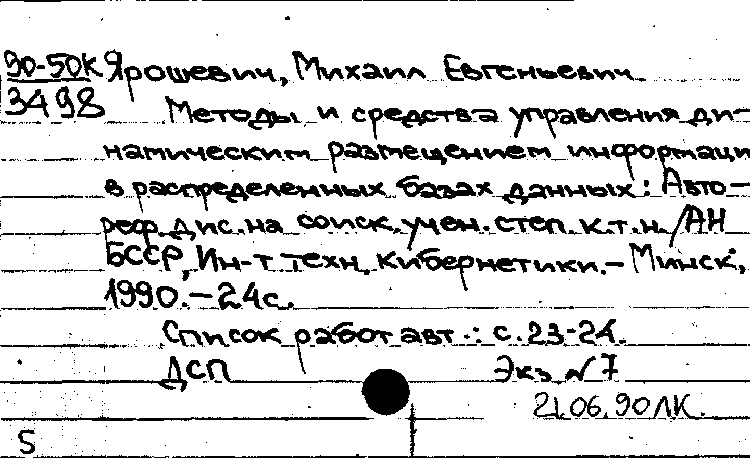 90-50К Ярошевич, Михаил Евгеньевич
3498 Методы и средства управления ди-
намическим размещением информаци
в распределенных базах данных: Авто-
реф. дис. на соиск. учен. степ. к.т.н. /АН
БССР, Ин-т техн. кибернетики.- Минск,
1990.-24с.
Список работ авт.: с.23-24.
ДСП Экз. N 7
21.06.90 ЛК.
5